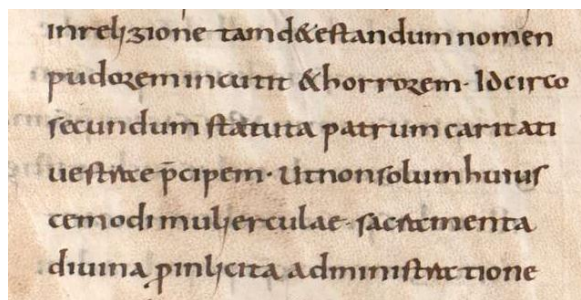 inreligione tamd&estandum nomen
pudorem incutit &horrorem· Idcirco
secundum statuta patrum caritati
uestrae p̄cipem· Utnonsolum huius
cemodi mulierculae sacramenta
diuina ꝑinlicita administratione